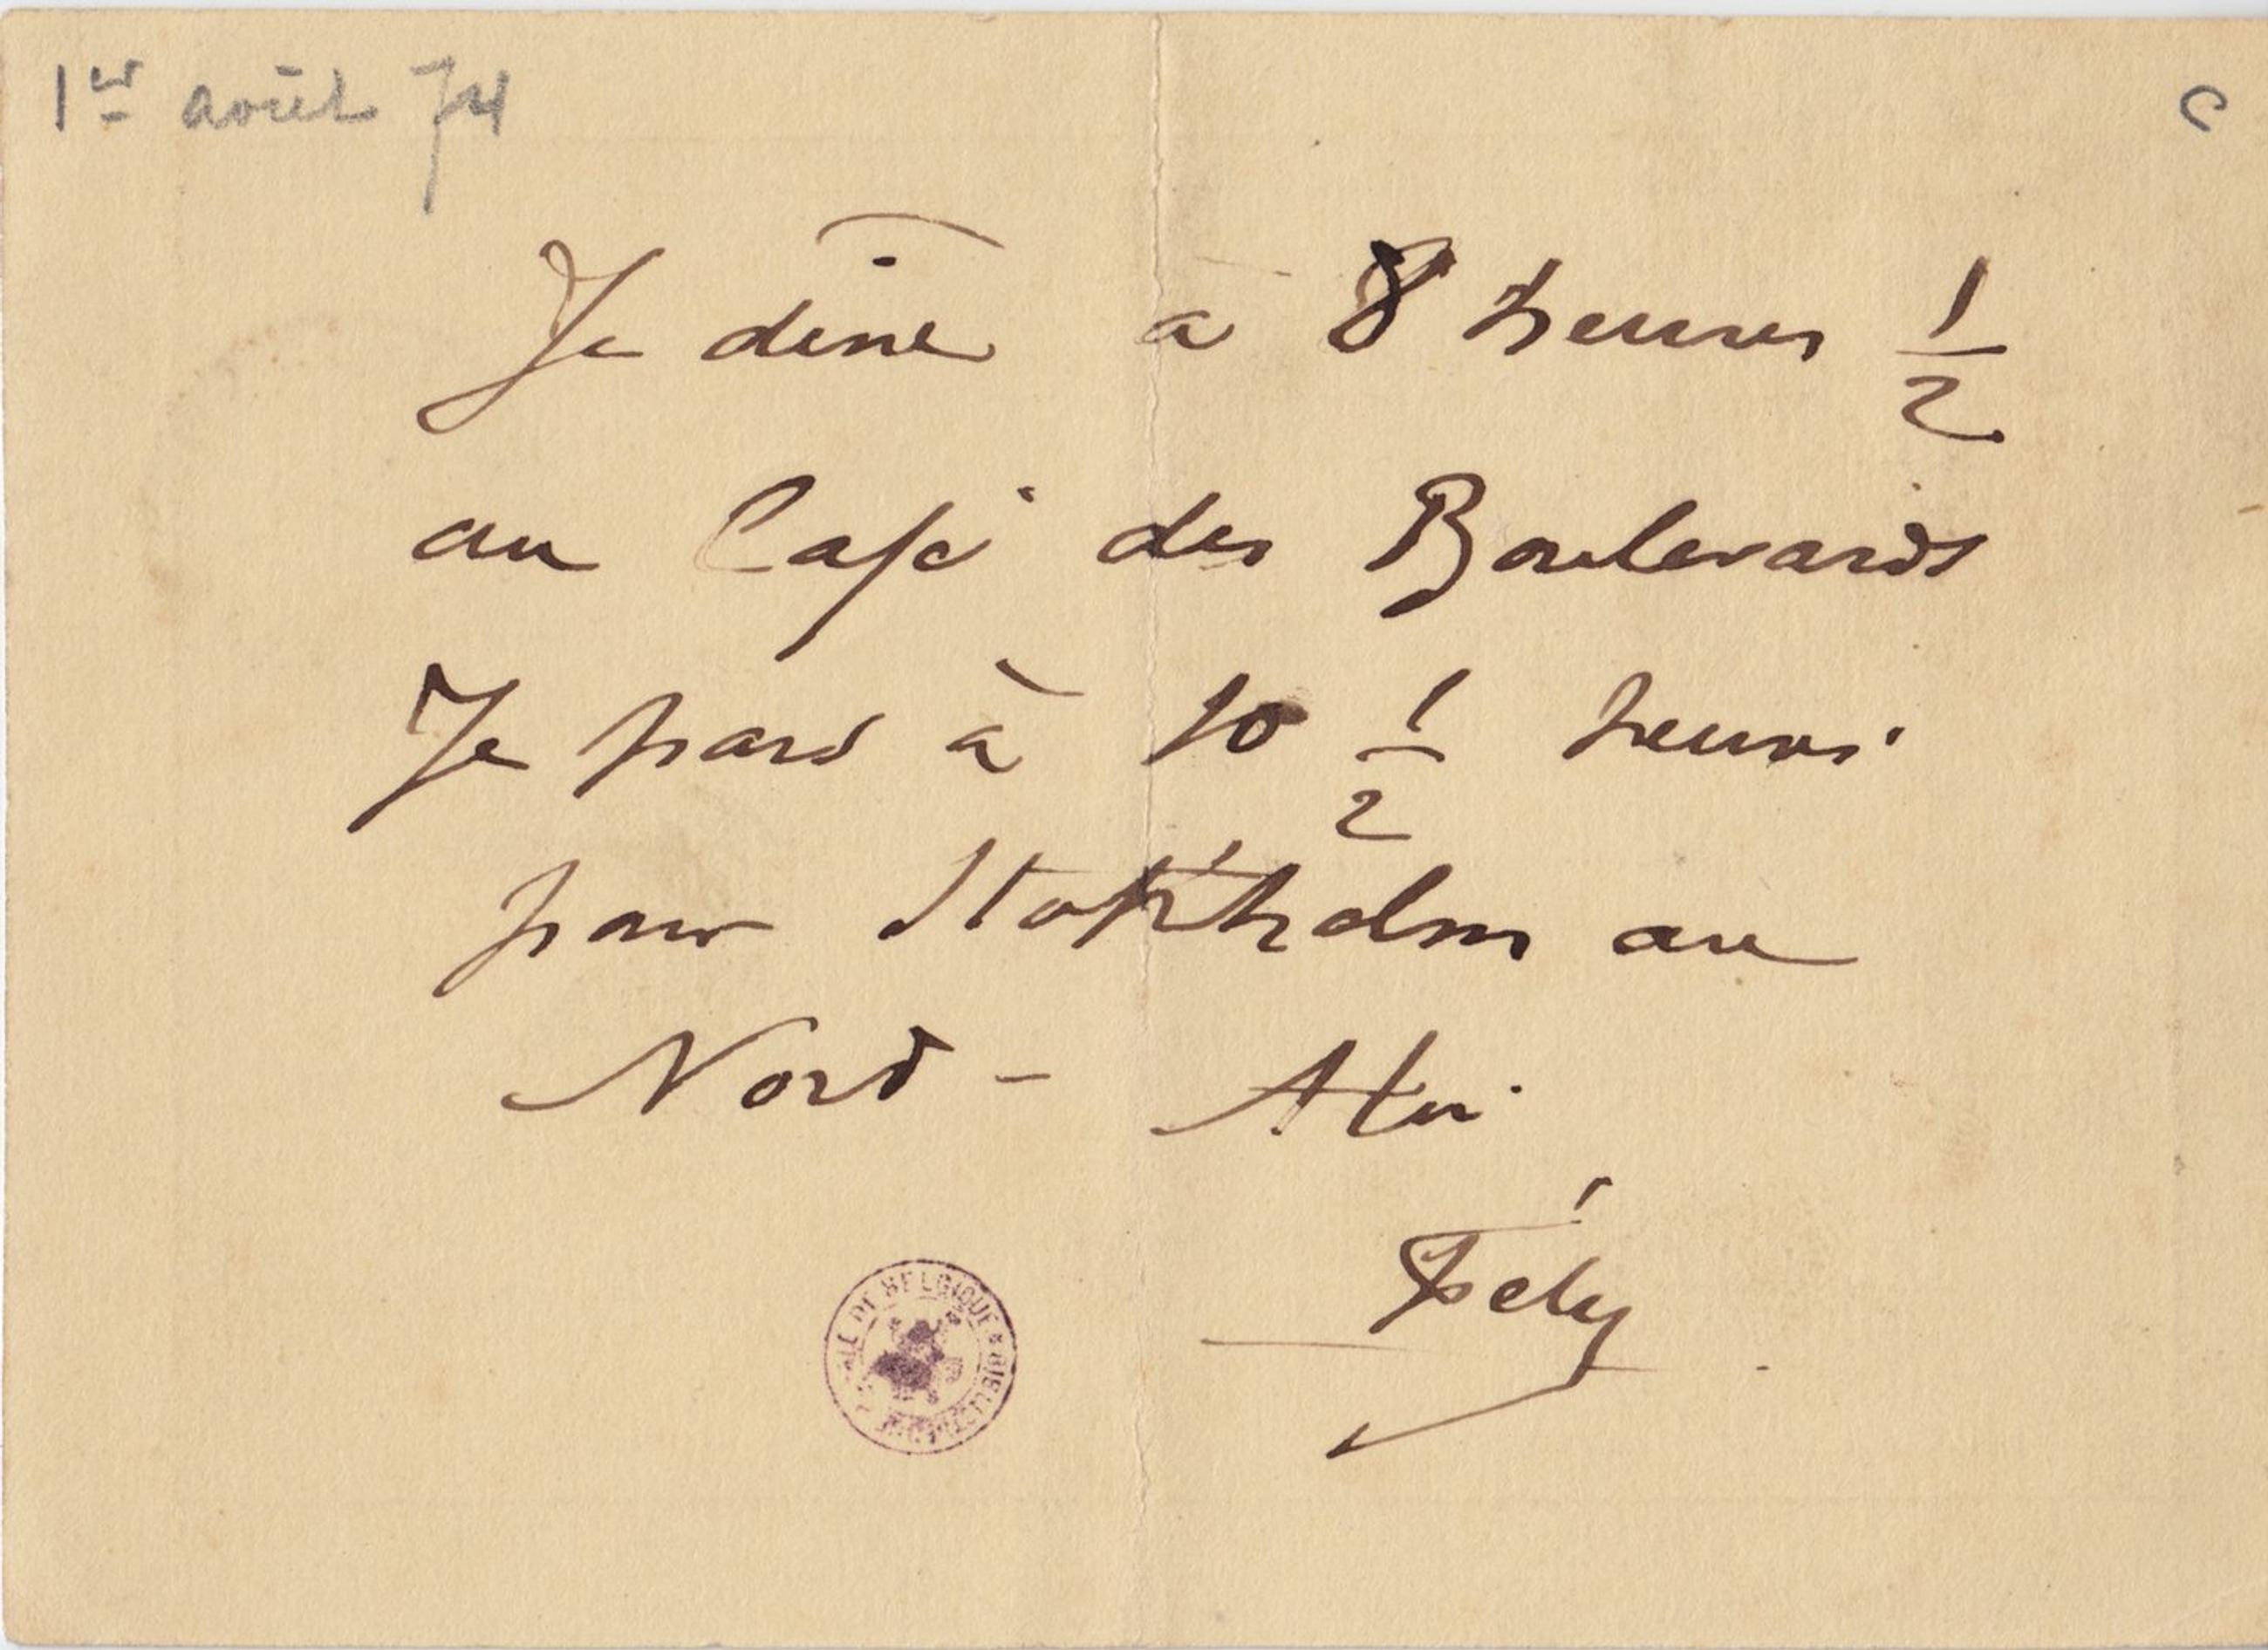 1er août 74
C
Je dîne à 8 heures 1/2
au Café des Boulevards
Je pars à 10 1/2 heures
pour Stokholm au
Nord - A toi
Fély
DE BELGIQUE